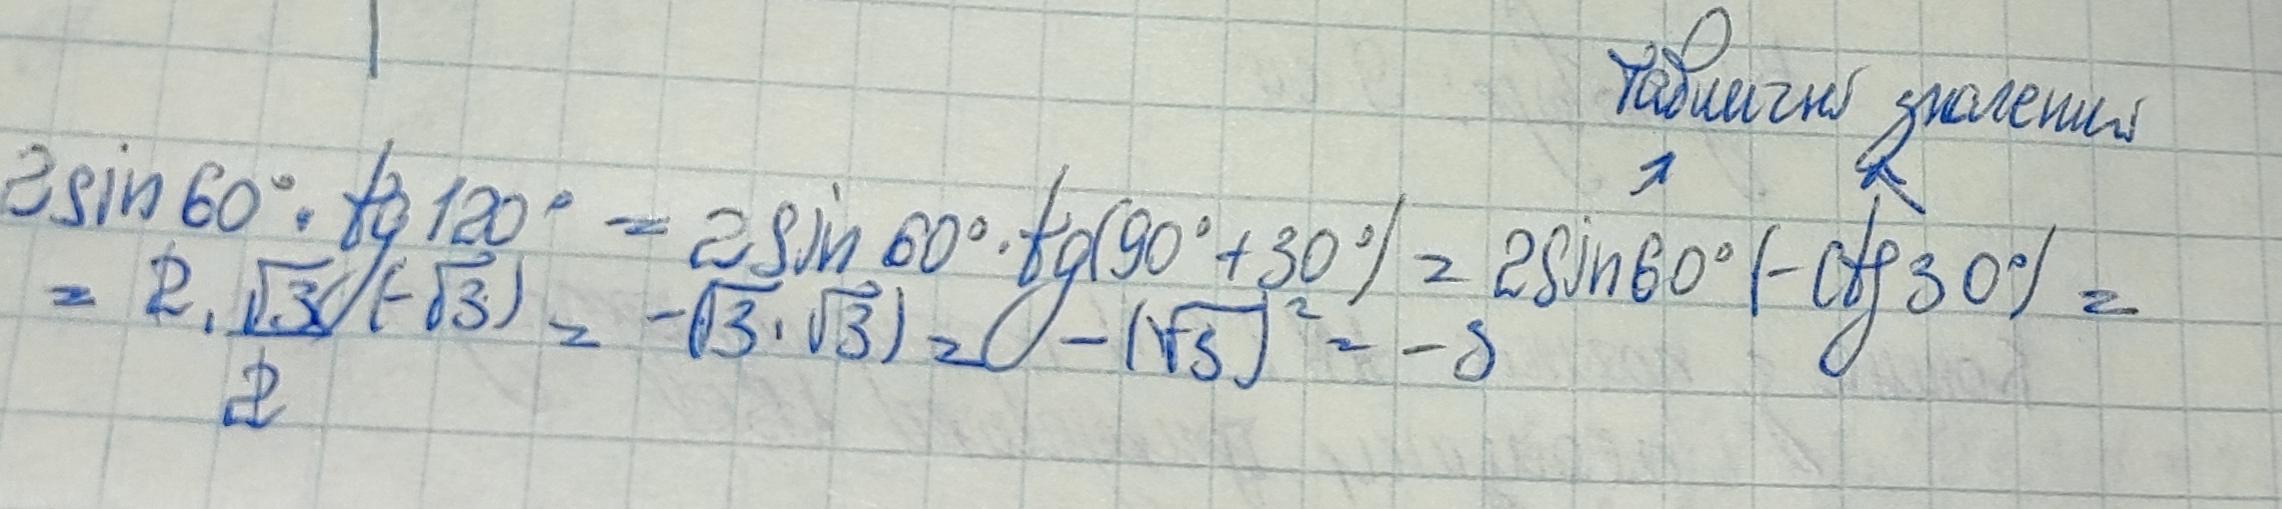 Табличні значення
2sin60°·tg120° = 2sin60°·tg(90°+30°) = 2sin60°(-ctg30°) =
= 2·√3/2(-√3) = -(√3·√3) = -(√3)² = -3